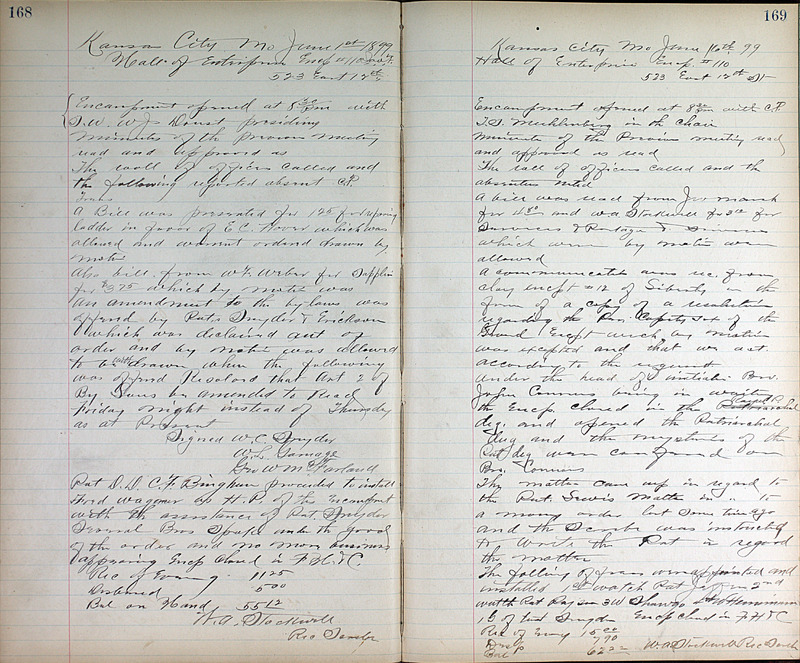 168
Kansas City Mo June 1st 1899
Hall of Enterprise Encp #110
523 East 12th
Encampment opened at 8 pm with
S.W. W J Doust presiding
Minutes of the previous meeting
read and approved as
The roll of officers called and
the following reported absent C.P.
A Bill was presented for 125 for
ladder in favor of E.C. Hoover which was
allowed and warrant ordered drawn by
motion
Also bill from W. Weber for Supplies
for $3.75 which by motion was
an amendment to the by laws was
offered by Pats Snyder & Erickson
which was declared out of
order and by motion was allowed
to be withdrawn when the following
was offered Resolved that Art 2 of
By Laws be amended to Read
Friday night instead of Thursday
as at Present
Signed W.C. Snyder
W.L. Gamage
Geo W McFarland
Pat D.D. C.P. Bingham proceeded to install
Fred Wagoner as H.P. of the Encampment
with the assistance of Pat. Snyder
Several Bros Spoke under the good
of the order and no more business
appearing Encp Closed in F.H.&C.
Rec of Evening 11 25
Disbursed 5 00
Bal on Hand 55 12
W.A. Stockwell
Rec Scribe
169
Kansas City Mo June 16th 99
Hall of Enterprise Encp #110
523 East 12th St
Encampment opened at 8 pm with C.P.
in the chair
Minutes of the Previous meeting read
and approved as read
The roll of officers called and the
absentees noted
A bill was read from Jno March
for and W.A. Stockwell for for
Services & Postage &
which were by motion were
allowed
A communication was rec. from
Clay encpt #12 of Liberty in the
form of a copy of a resolution
regarding the Per. Capita tax of the
Grand Encpt which by motion
was excepted and that we act
according to the request
Under the head of initiation Bro.
John Connors being in waiting
the Encp closed in the
deg. and opened the Patriarchal
deg and the mysteries of the
Pat deg were confered on
Bro. Connors
The matter came up in regard to
the Pat. Lewis Matter in to
a money order lost some time ago
and the Scribe was instructed
to write the Pat in regard
the matter
The following officers were appointed and
installed 1st watch Pat 2nd
watch Pat 3 W
1 G of tent Snyder Encp closed in F.H.&C
Rec of Eveng 15 00
Disb 7 90
Bal 62 22
W.A. Stockwell Rec Scribe